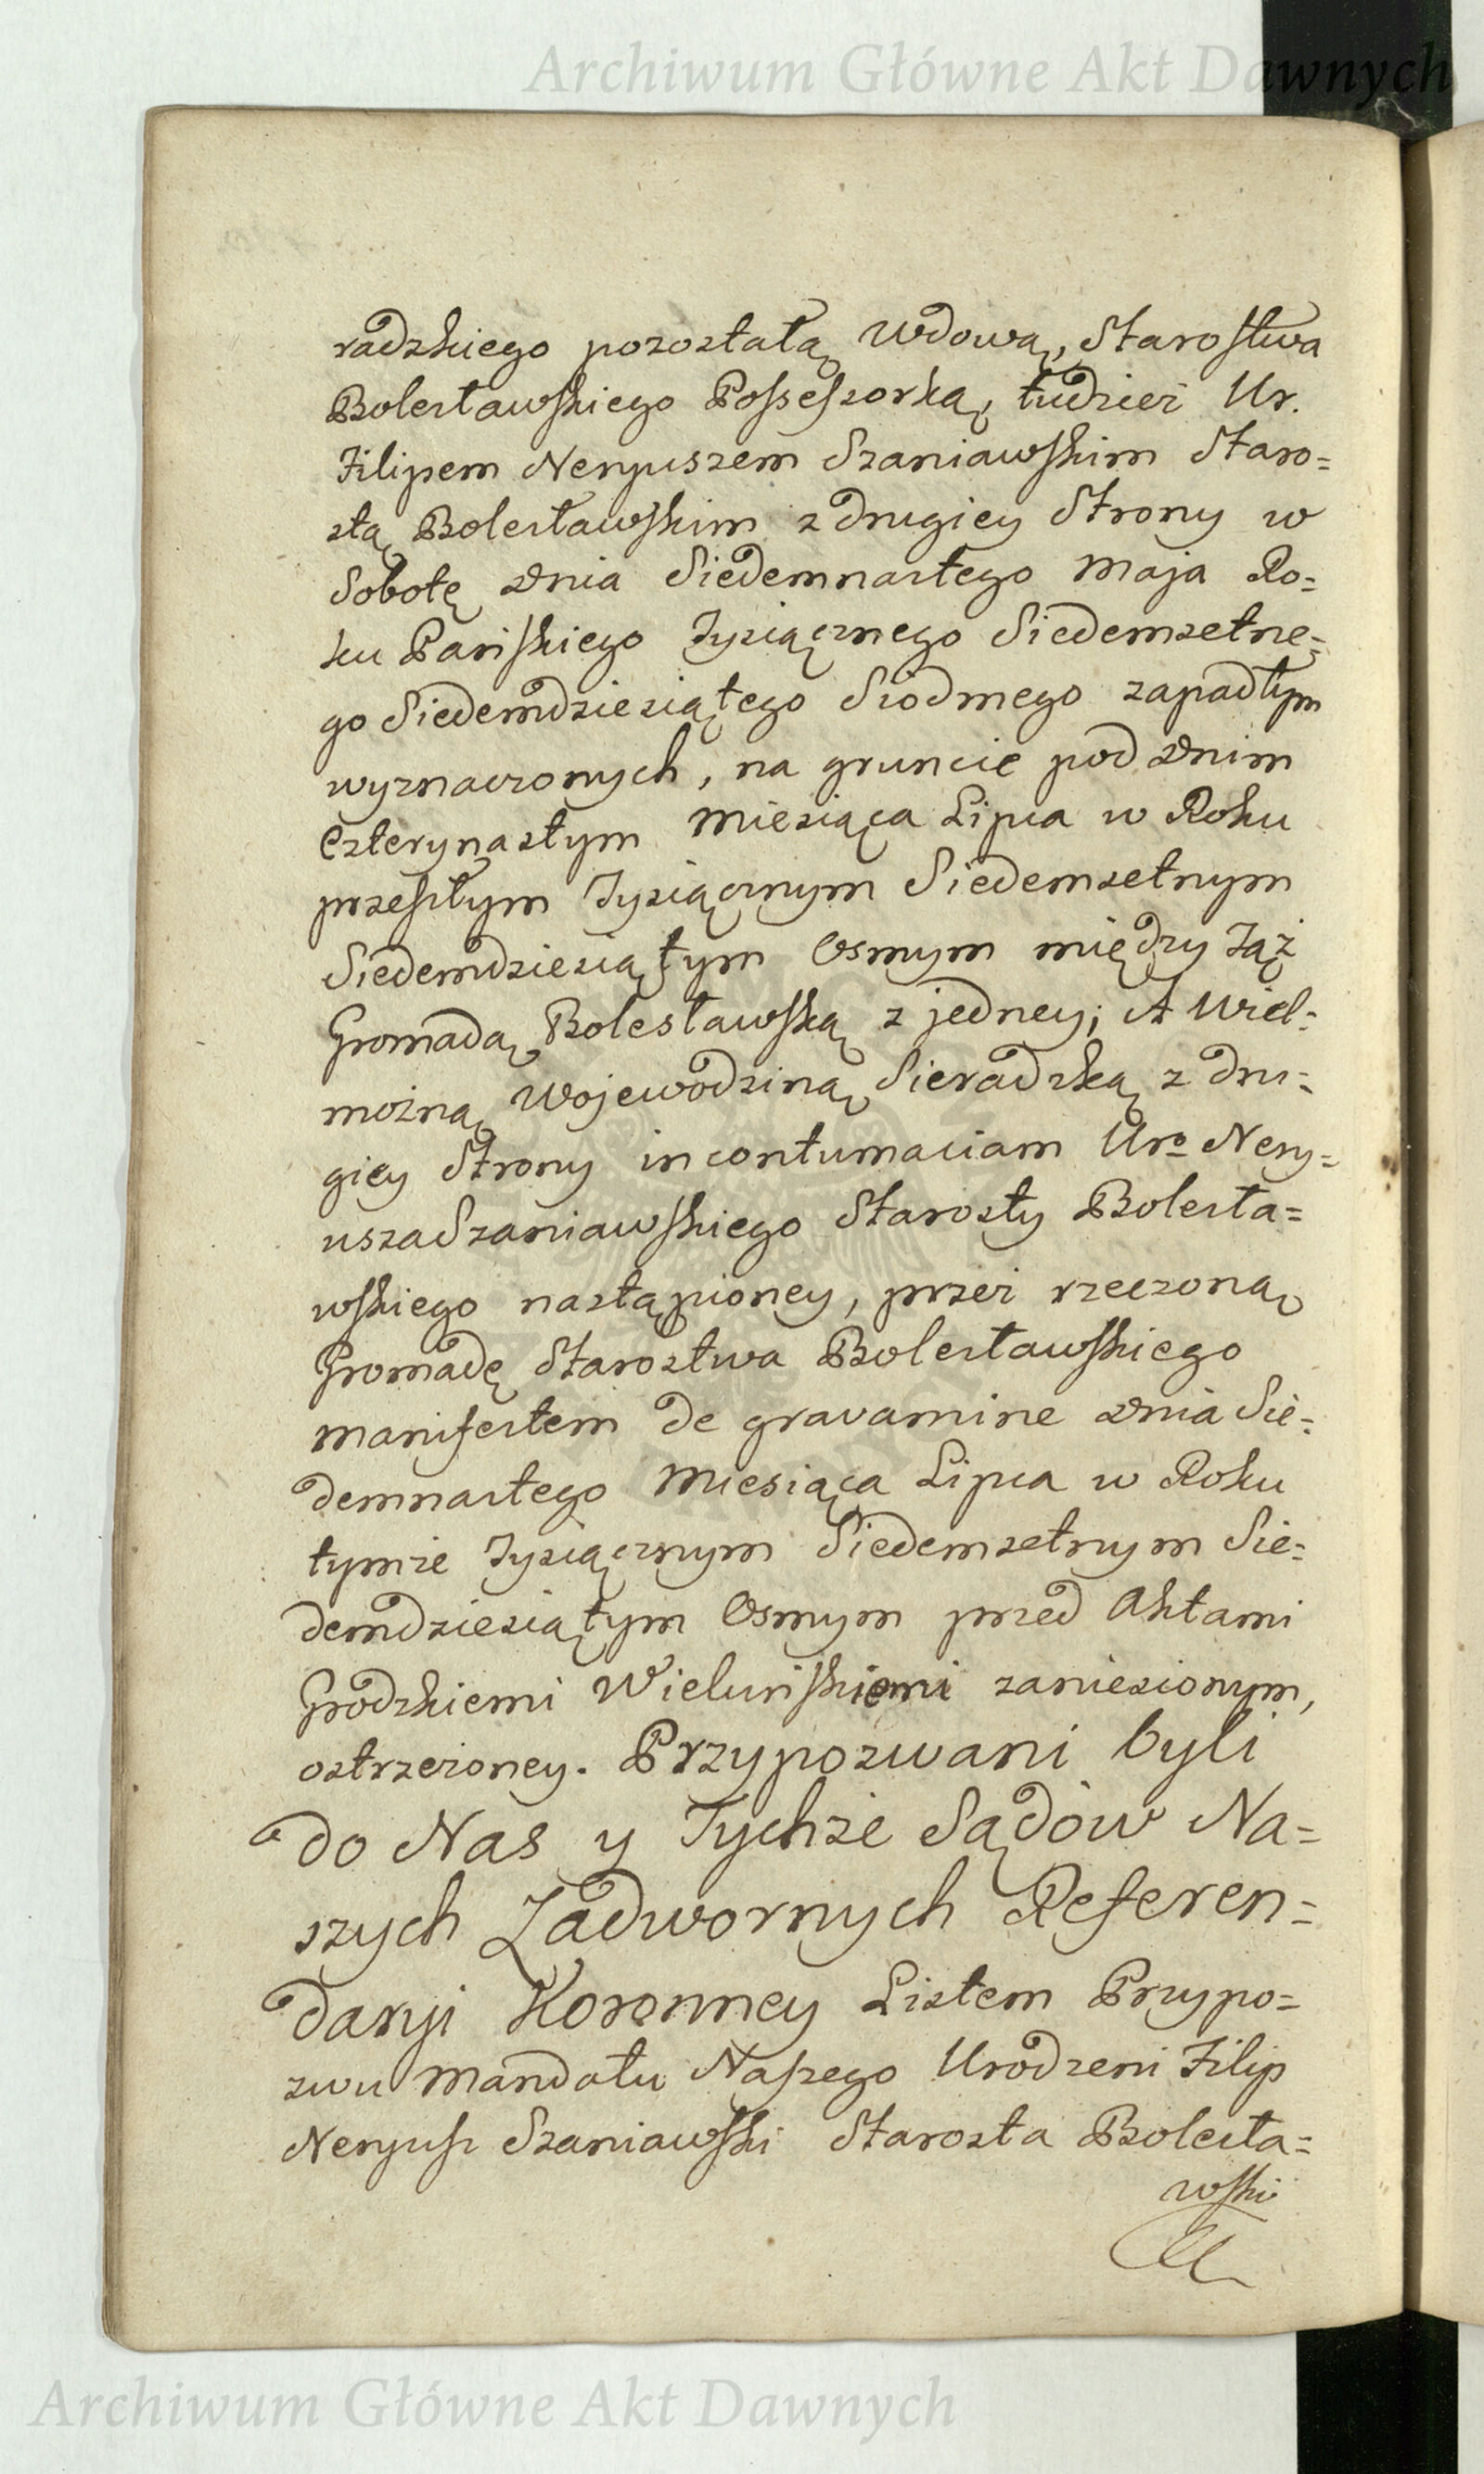 Archiwum Główne Akt Dawnych
radzkiego pozostałą Wdową, Starostwa
Bolesławskiego Possessorką, tudziesz Ur.
Filipem Neryuszem Szaniawskim Staro=
stą Bolesławskim z drugiey Strony w
Sobotę Dnia Siedemnastego Maja Ro=
ku Pańskiego Tysiącznego Siedemsetne=
go Siedemdziesiątego Siodmego zapadłym
wyznaczonych, na gruncie pod Dnim
Czterynastym Miesiąca Lipca w Roku
przeszłym Tysiącznym Siedemsetnym
Siedemdziesiątym Osmym między Taż
Gromadą Bolesławską z jedney; A Wiel=
możną Wojewodziną Sieradzką z dru=
giey Strony in contumaciam Uro Nery=
usza Szaniawskiego Starosty Bolesła=
wskiego nastąpioney, przez rzeczoną
Gromadę Starostwa Bolesławskiego
Manifestem de gravamine Dnia Sie=
demnastego Miesiąca Lipca w Roku
tymże Tysiącznym Siedemsetnym Sie=
demdziesiątym Osmym przed Aktami
Grodzkiemi Wieluńskiemi zaniesionym,
ostrzeżoney. Przypozwani byli
do Nas y Tychże Sądów Na=
szych Zadwornych Referen=
daryi Koronney Listem Przypo=
zwu Mandatu Naszego Urodzeni Filip
Neryusz Szaniawski Starosta Bolesła=
wski
Archiwum Główne Akt Dawnych